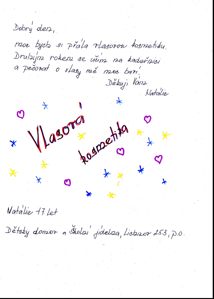 Dobrý den,
moc bych si přála vlasovou kosmetiku.
Druhým rokem se učím na kadeřnici
a pečovat o vlasy mě moc baví.
Děkuji Vám
Natálie
Vlasová
kosmetika
Natálie 17 let
Dětský domov a Školní jídelna, 253, p.o.